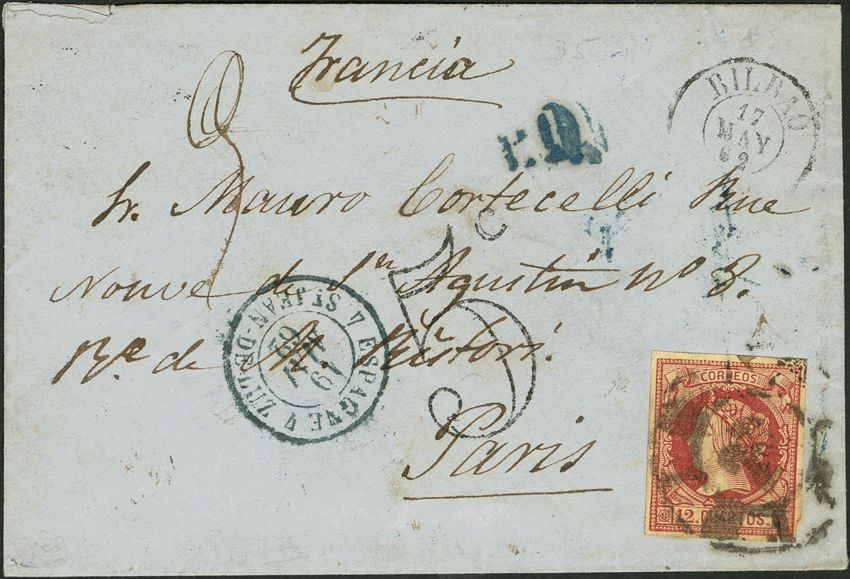 Francia
BILBAO
17
MAY
62
P.D.
Sr. Mauro Cortecelli Rue
Neuve de Sn Agustin No 8.
ESPAGNE
ST JEAN-DE-LUZ
19
MAI
62
de
Paris
CORREOS
12. CUARTOS.